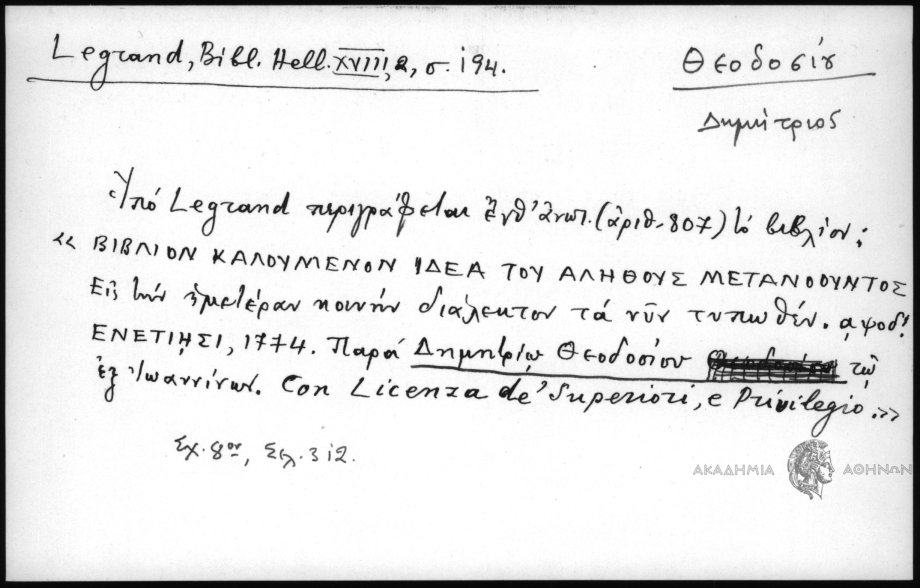 Legrand, Bibl. Hell. XVIII, 2, σ. 194.
Θεοδοσίου
Δημήτριος
Ὑπό Legrand περιγράφεται ἔνθ' ἀνωτ. (ἀριθ. 807) τὸ βιβλίον:
« ΒΙΒΛΙΟΝ ΚΑΛΟΥΜΕΝΟΝ ΙΔΕΑ ΤΟΥ ΑΛΗΘΟΥΣ ΜΕΤΑΝΟΟΥΝΤΟΣ
Εἰς τὴν ἡμετέραν κοινὴν διάλεκτον τὰ νῦν τυπωθέν. αψοδ!
ΕΝΕΤΙῌΣΙ, 1774. Παρά Δημητρίῳ Θεοδοσίου τῷ
ἐξ Ἰωαννίνων. Con Licenza de' Superiori, e Privilegio.»
Σχ. 8ον, Σελ. 312.
ΑΚΑΔΗΜΙΑ ΑΘΗΝΩΝ